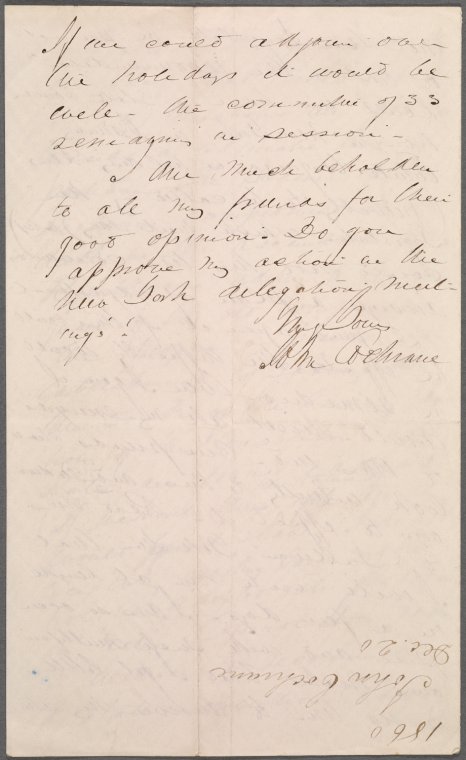 If we could adjourn over
the holidays it would be
well - the committee of 33
remaining in session -
I am much beholden
to all my friends for their
good opinion. Do you
approve my action in the
New York delegation meet-
ings?
Yours
John Cochrane
Dec. 20
John Cochrane
1860